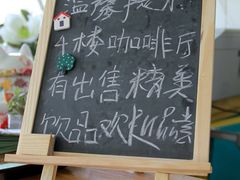 温馨提示
4楼咖啡厅
有出售精美
饮品欢迎品尝